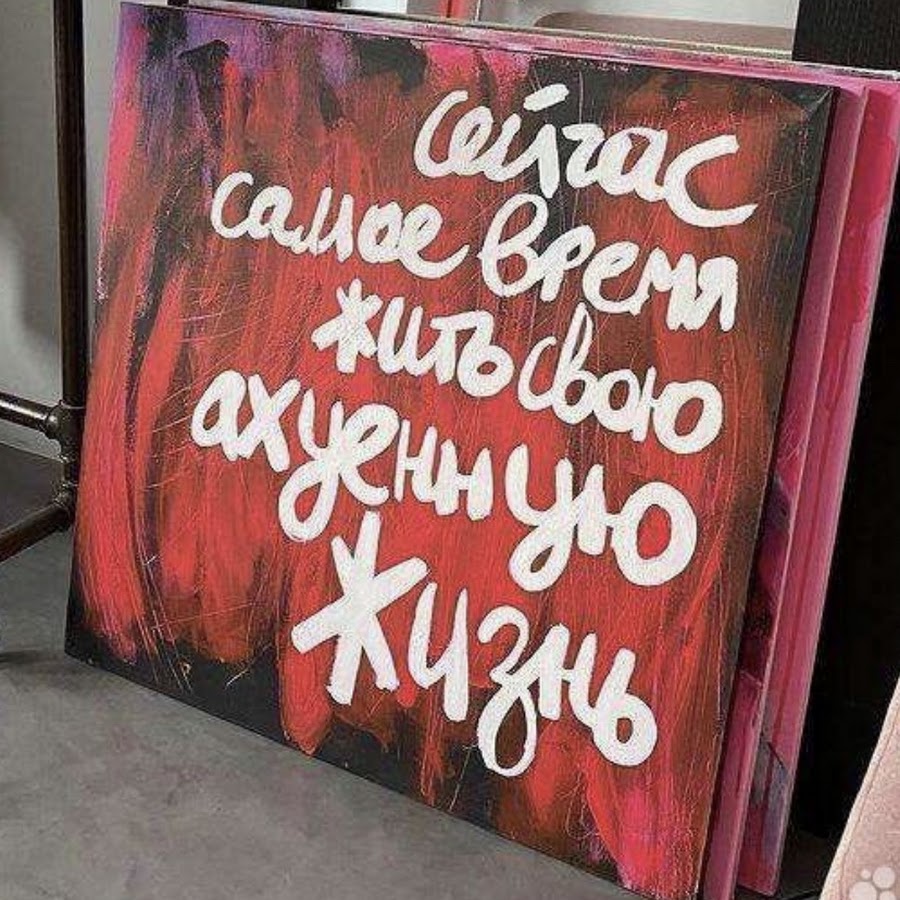 сейчас
самое время
жить свою
ахуенную
жизнь